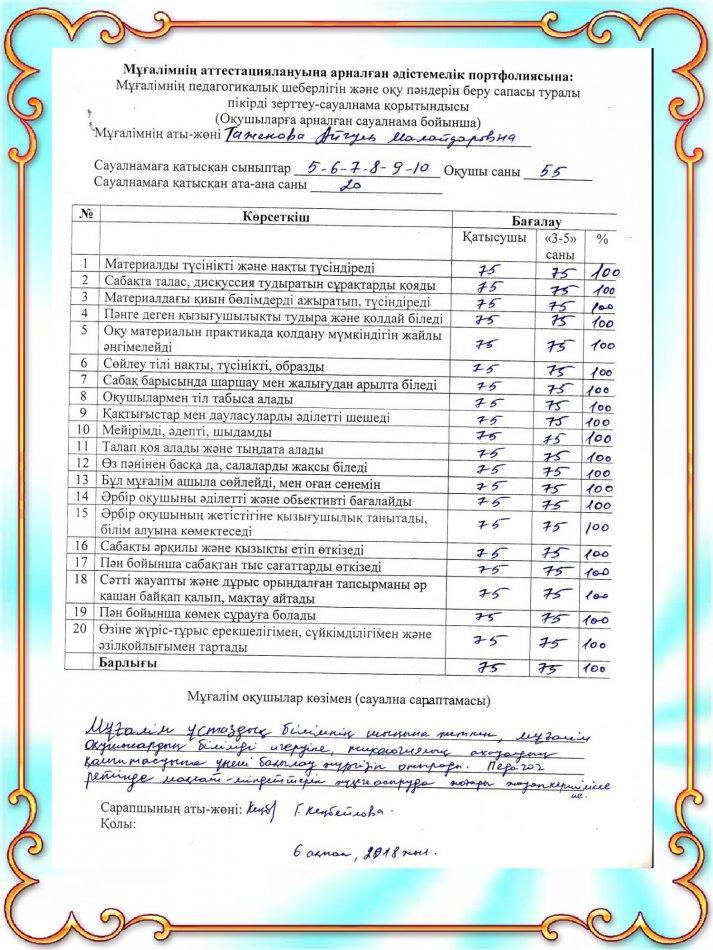 Мұғалімнің аттестациялануына арналған әдістемелік портфолиясына:
Мұғалімнің педагогикалық шеберлігін және оқу пәндерін беру сапасы туралы
пікірді зерттеу-сауалнама қорытындысы
(Оқушыларға арналған сауалнама бойынша)
Мұғалімнің аты-жөні Таженова Айгуль
Сауалнамаға қатысқан сыныптар 5-6-7-8-9-10 Оқушы саны 55
Сауалнамаға қатысқан ата-ана саны 20
№ Көрсеткіш Бағалау
Қатысушы «3-5» саны %
1 Материалды түсінікті және нақты түсіндіреді 75 75 100
2 Сабақта талас, дискуссия тудыратын сұрақтарды қояды 75 75 100
3 Материалдағы қиын бөлімдерді ажыратып, түсіндіреді 75 75 100
4 Пәнге деген қызығушылықты тудыра және қолдай біледі 75 75 100
5 Оқу материалын практикада қолдану мүмкіндігін жайлы
әңгімелейді 75 75 100
6 Сөйлеу тілі нақты, түсінікті, образды 75 75 100
7 Сабақ барысында шаршау мен жалығудан арылта біледі 75 75 100
8 Оқушылармен тіл табыса алады 75 75 100
9 Қақтығыстар мен дауласуларды әділетті шешеді 75 75 100
10 Мейірімді, әдепті, шыдамды 75 75 100
11 Талап қоя алады және тыңдата алады 75 75 100
12 Өз пәнінен басқа да, салаларды жақсы біледі 75 75 100
13 Бұл мұғалім ашыла сөйлейді, мен оған сенемін 75 75 100
14 Әрбір оқушыны әділетті және обьективті бағалайды 75 75 100
15 Әрбір оқушының жетістігіне қызығушылық танытады,
білім алуына көмектеседі 75 75 100
16 Сабақты әрқилы және қызықты етіп өткізеді 75 75 100
17 Пән бойынша сабақтан тыс сағаттарды өткізеді 75 75 100
18 Сәтті жауапты және дұрыс орындалған тапсырманы әр
қашан байқап қалып, мақтау айтады 75 75 100
19 Пән бойынша көмек сұрауға болады 75 75 100
20 Өзіне жүріс-тұрыс ерекшелігімен, сүйкімділігімен және
әзілқойлығымен тартады 75 75 100
Барлығы 75 75 100
Мұғалім оқушылар көзімен (сауална сараптамасы)
Мұғалім ұстаздық білімнің шыңына жеткен, мұғалім
оқушылардың білімді игеруіне, психологиялық ахуалдың
қалыптасуына үнемі бақылау жүргізіп отырады. Педагог
ретінде мақсат-міндеттерін жүзеге асыруда жоғары
Сарапшының аты-жөні:
Қолы:
6 ақпан, 2018 жыл.